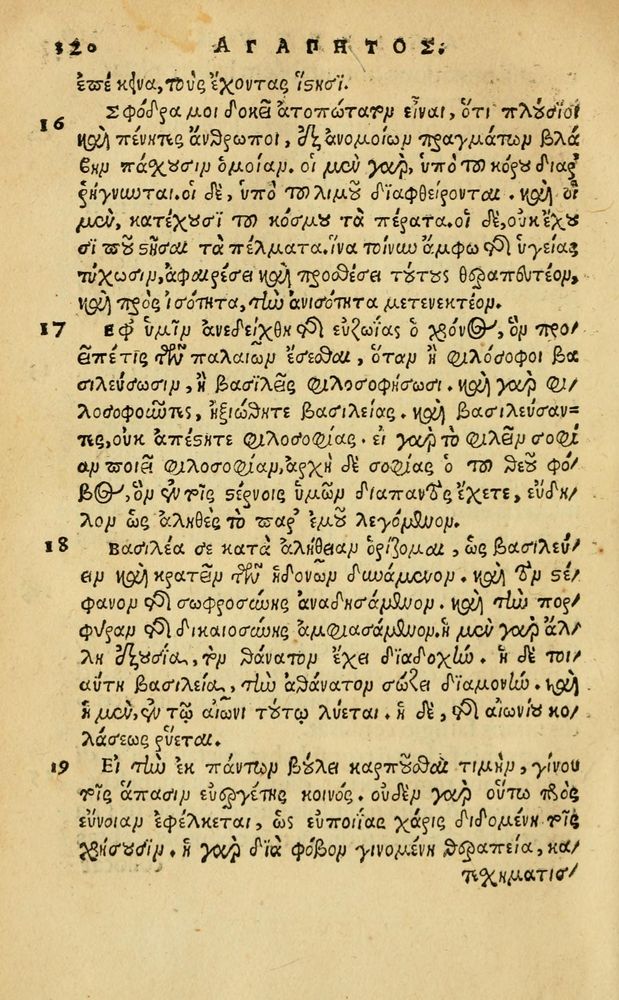 320 ΑΓΑΠΗΤΟΣ.
ἐπέκεινα, τοὺς ἔχοντας ἵστησι.
16 Σφόδρα μοι δοκεῖ ἀτοπώταтον εἶναι, ὅτι πλούσιοι
καὶ πένητες ἄνθρωποι, ἐξ ἀνομοίων πραγμάτων βλά
βην πάσχουσιν ὁμοίαν. οἱ μὲν γὰρ, ὑπὸ τοῦ κόρου διαρ
ῥήγνωνται. οἱ δὲ, ὑπὸ τοῦ λιμοῦ διαφθείρονται. καὶ οἱ
μὲν, κατέχουσι τοῦ κόσμου τὰ πέρατα. οἱ δὲ, οὐκ ἔχου
σι ποῦ στῆσαι τὰ πέλματα. ἵνα τοίνυν ἄμφω τῆς ὑγείας
τύχωσιν, ἀφαιρέσει καὶ προσθέσει τούτους θεραπευτέον,
καὶ πρὸς ἰσότητα, τὴν ἀνισότητα μετενεκτέον.
17 Ἐφ ὑμῖν ἀνεδείχθη τῆς εὐζωΐας ὁ χρόνος, ὃν προ/
εῖπέ τις τῶν παλαιῶν ἔσεσθαι, ὅταν ἢ φιλόσοφοι βα
σιλεύσωσιν, ἢ βασιλεῖς φιλοσοφήσωσι. καὶ γὰρ φι/
λοσοφοῦντες, ἠξιώθητε βασιλείας. καὶ βασιλεύσαν=
τες, οὐκ ἀπέστητε φιλοσοφίας. εἰ γὰρ τὸ φιλεῖν σοφί
αν ποιεῖ φιλοσοφίαν, ἀρχὴ δὲ σοφίας ὁ τοῦ θεοῦ φό/
βος, ὃν ἐν τοῖς στέρνοις ὑμῶν διαπαντὸς ἔχετε, εὔδη/
λον ὡς ἀληθὲς τὸ παρ' ἐμοῦ λεγόμενον.
18 Βασιλέα σε κατὰ ἀλήθειαν ὁρίζομαι, ὡς βασιλεύ/
ειν καὶ κρατεῖν τῶν ἡδονῶν δυνάμενον. καὶ τὸν στέ/
φανον τῆς σωφροσύνης ἀναδησάμενον. καὶ τὴν πορ/
φύραν τῆς δικαιοσύνης ἀμφιασάμενον. ἡ μὲν γὰρ ἄλ/
λη ἐξουσία, τὸν θάνατον ἔχει διαδοχὴν. ἡ δὲ τοι/
αύτη βασιλεία, τὴν ἀθάνατον σώζει διαμονὴν. καὶ
ἡ μὲν, ἐν τῷ αἰῶνι τούτῳ λύεται. ἡ δὲ, τῆς αἰωνίου κο/
λάσεως ῥύεται.
19 Εἰ τὴν ἐκ πάντων βούλει καρποῦσθαι τιμὴν, γίνου
τοῖς ἅπασιν εὐεργέτης κοινός. οὐδὲν γὰρ οὕτω πρὸς
εὔνοιαν ἐφέλκεται, ὡς εὐποιΐας χάρις διδομένη τοῖς
χρῄζουσιν. ἡ γὰρ διὰ φόβον γινομένη θεραπεία, κα/
τεχηματισ/